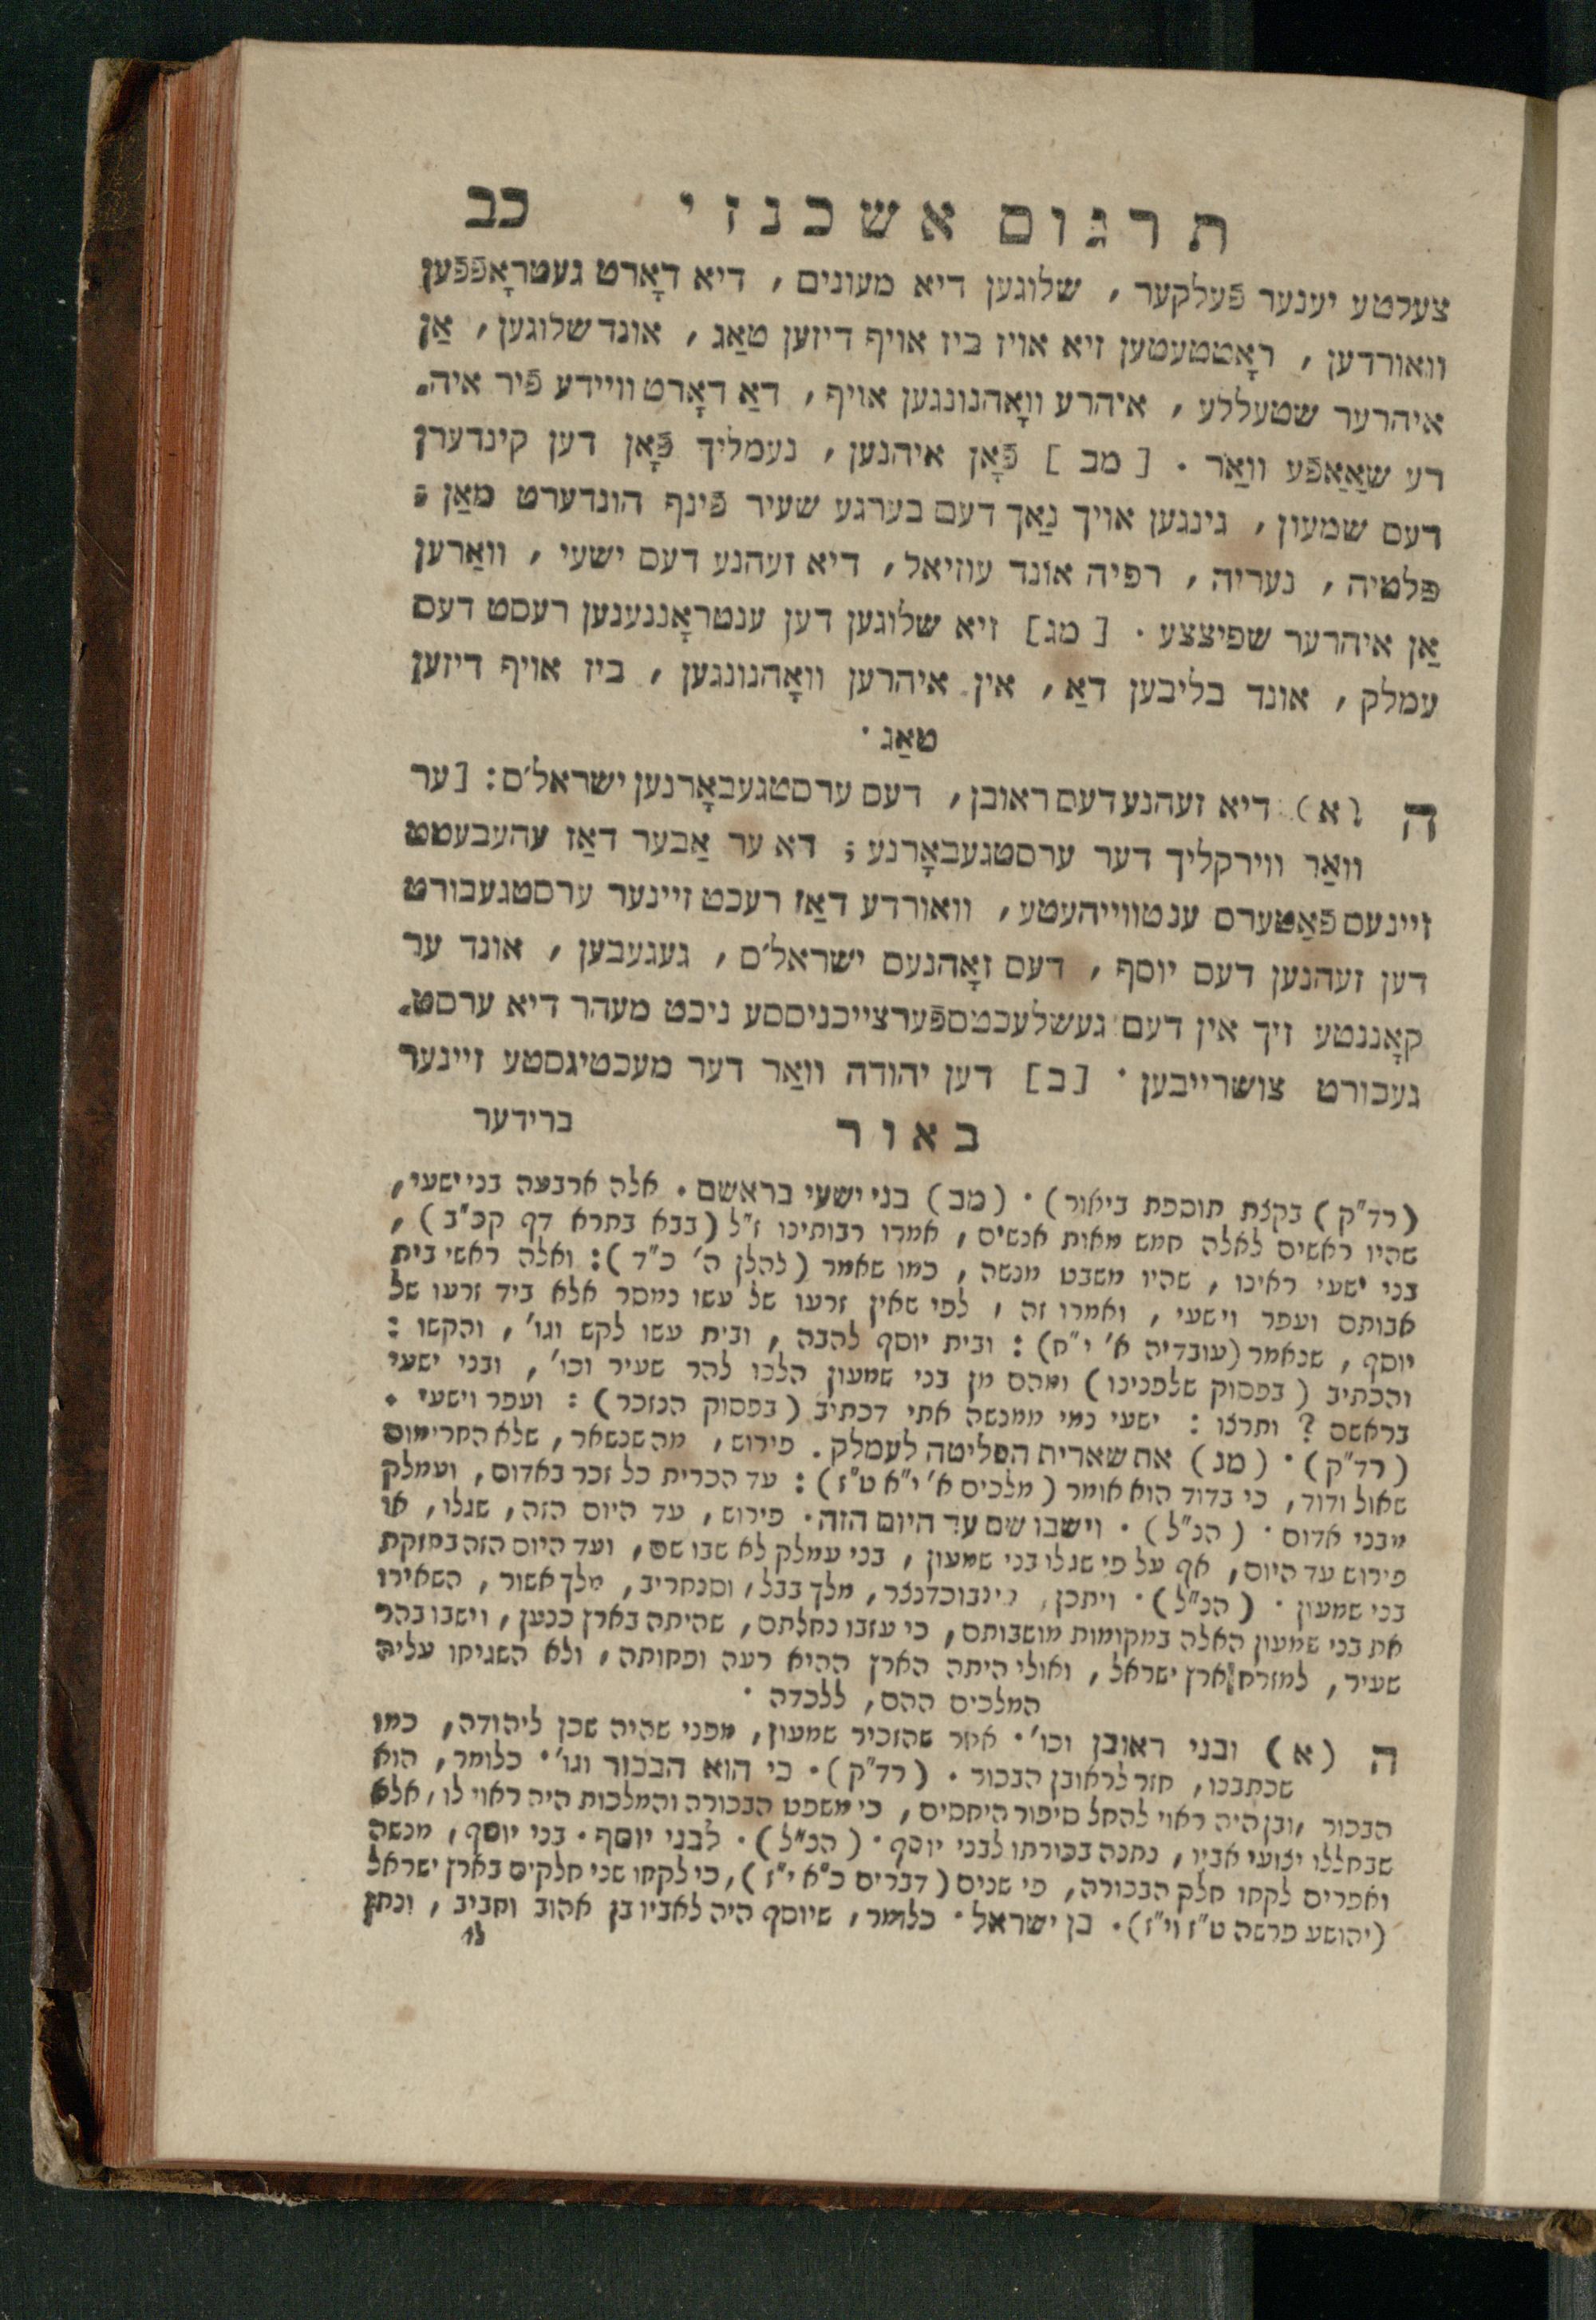 תרגום אשכנזי כב
צעלטע יענער פֿעלקער, שלוגען דיא מעונים, דיא דאָרט געטראָפֿפֿען
וואורדען, ראָטטעטען זיא אויז ביז אויף דיזען טאַג, אונד שלוגען, אַן
איהרער שטעללע, איהרע וואָהנונגען אויף, דאַ דאָרט וויידע פֿיר איה-
רע שאַאַפֿע וואַר. [מב] פֿאָן איהנען, נעמליך פֿאָן דען קינדערן
דעם שמעון, גינגען אויך נאַך דעם בערגע שעיר פֿינף הונדערט מאַן:
פלטיה, נעריה, רפיה אונד עוזיאל, דיא זעהנע דעם ישעי, וואַרען
אַן איהרער שפיצצע. [מג] זיא שלוגען דען ענטראָננענען רעסט דעם
עמלק, אונד בליבען דאַ, אין איהרען וואָהנונגען, ביז אויף דיזען
טאַג.
ה (א) דיא זעהנע דעם ראובן, דעם ערסטגעבאָרנען ישראל'ס: [ער
וואַר ווירקליך דער ערסטגעבאָרנע; דא ער אַבער דאַז עהעבעטט
זיינעם פֿאַטערס ענטווייהעטע, וואורדע דאַז רעכט זיינער ערסטגעבורט
דען זעהנען דעם יוסף, דעם זאָהנעס ישראל'ס, געגעבען, אונד ער
קאָננטע זיך אין דעם געשלעכטספֿערצייכניססע ניכט מעהר דיא ערסט-
געבורט צושרייבען. [ב] דען יהודה וואַר דער מעכטיגסטע זיינער
ברידער
באור
(רד"ק) בקצת תוספת ביאור). (מב) בני ישעי בראשם. אלה ארבעה בני ישעי,
שהיו ראשים לאלה חמש מאות אנשים, אמרו רבותינו ז"ל (בבא בתרא דף קכ"ב),
בני ישעי ראינו, שהיו משבט מנשה, כמו שאמר (להלן ה' כ"ד): ואלה ראשי בית
אבותם ועפר וישעי, ואמרו זה, לפי שאין זרעו של עשו נמסר אלא ביד זרעו של
יוסף, שנאמר (עובדיה א' י"ח): ובית יוסף להבה, ובית עשו לקש וגו', והקשו:
והכתיב (בפסוק שלפנינו) ומהם מן בני שמעון הלכו להר שעיר וכו', ובני ישעי
בראשם? ותרצו: ישעי נמי ממנשה אתי דכתיב (בפסוק הנזכר): ועפר וישעי.
(רד"ק). (מג) את שארית הפליטה לעמלק. פירוש, מה שנשאר, שלא החרימום
שאול ודוד, כי בדוד הוא אומר (מלכים א' י"א ט"ז): עד הכרית כל זכר באדום, ועמלק
מבני אדום. (הנ"ל). וישבו שם עד היום הזה. פירוש, עד היום הזה, שגלו, או
פירוש עד היום, אף על פי שגלו בני שמעון, בני עמלק לא שבו שם, ועד היום הזה בחזקת
בני שמעון. (הנ"ל). ויתכן, נבוכדנצר, מלך בבל, וסנחריב, מלך אשור, השאירו
את בני שמעון האלה במקומות מושבותם, כי עזבו נחלתם, שהיתה בארץ כנען, וישבו בהר
שעיר, למזרח ארץ ישראל, ואולי היתה הארץ ההיא רעה ופחותה, ולא השגיחו עליה
המלכים ההם, ללכדה.
ה (א) ובני ראובן וכו'. אחר שהזכיר שמעון, מפני שהיה שכן ליהודה, כמו
שכתבנו, חזר לראובן הבכור. (רד"ק). כי הוא הבכור וגו'. כלומר, הוא
הבכור, ובן היה ראוי להחל סיפור היחסים, כי משפט הבכורה והמלכות היה ראוי לו, אלא
שבחללו יצועי אביו, נתנה בכורתו לבני יוסף. (הנ"ל). לבני יוסף. בני יוסף, מנשה
ואפרים לקחו חלק הבכורה, פי שנים (דברים כ"א י"ז), כי לקחו שני חלקים בארץ ישראל
(יהושע פרשה ט"ז וי"ז). בן ישראל. כלומר, שיוסף היה לאביו בן אהוב וחביב, ונתן
לו